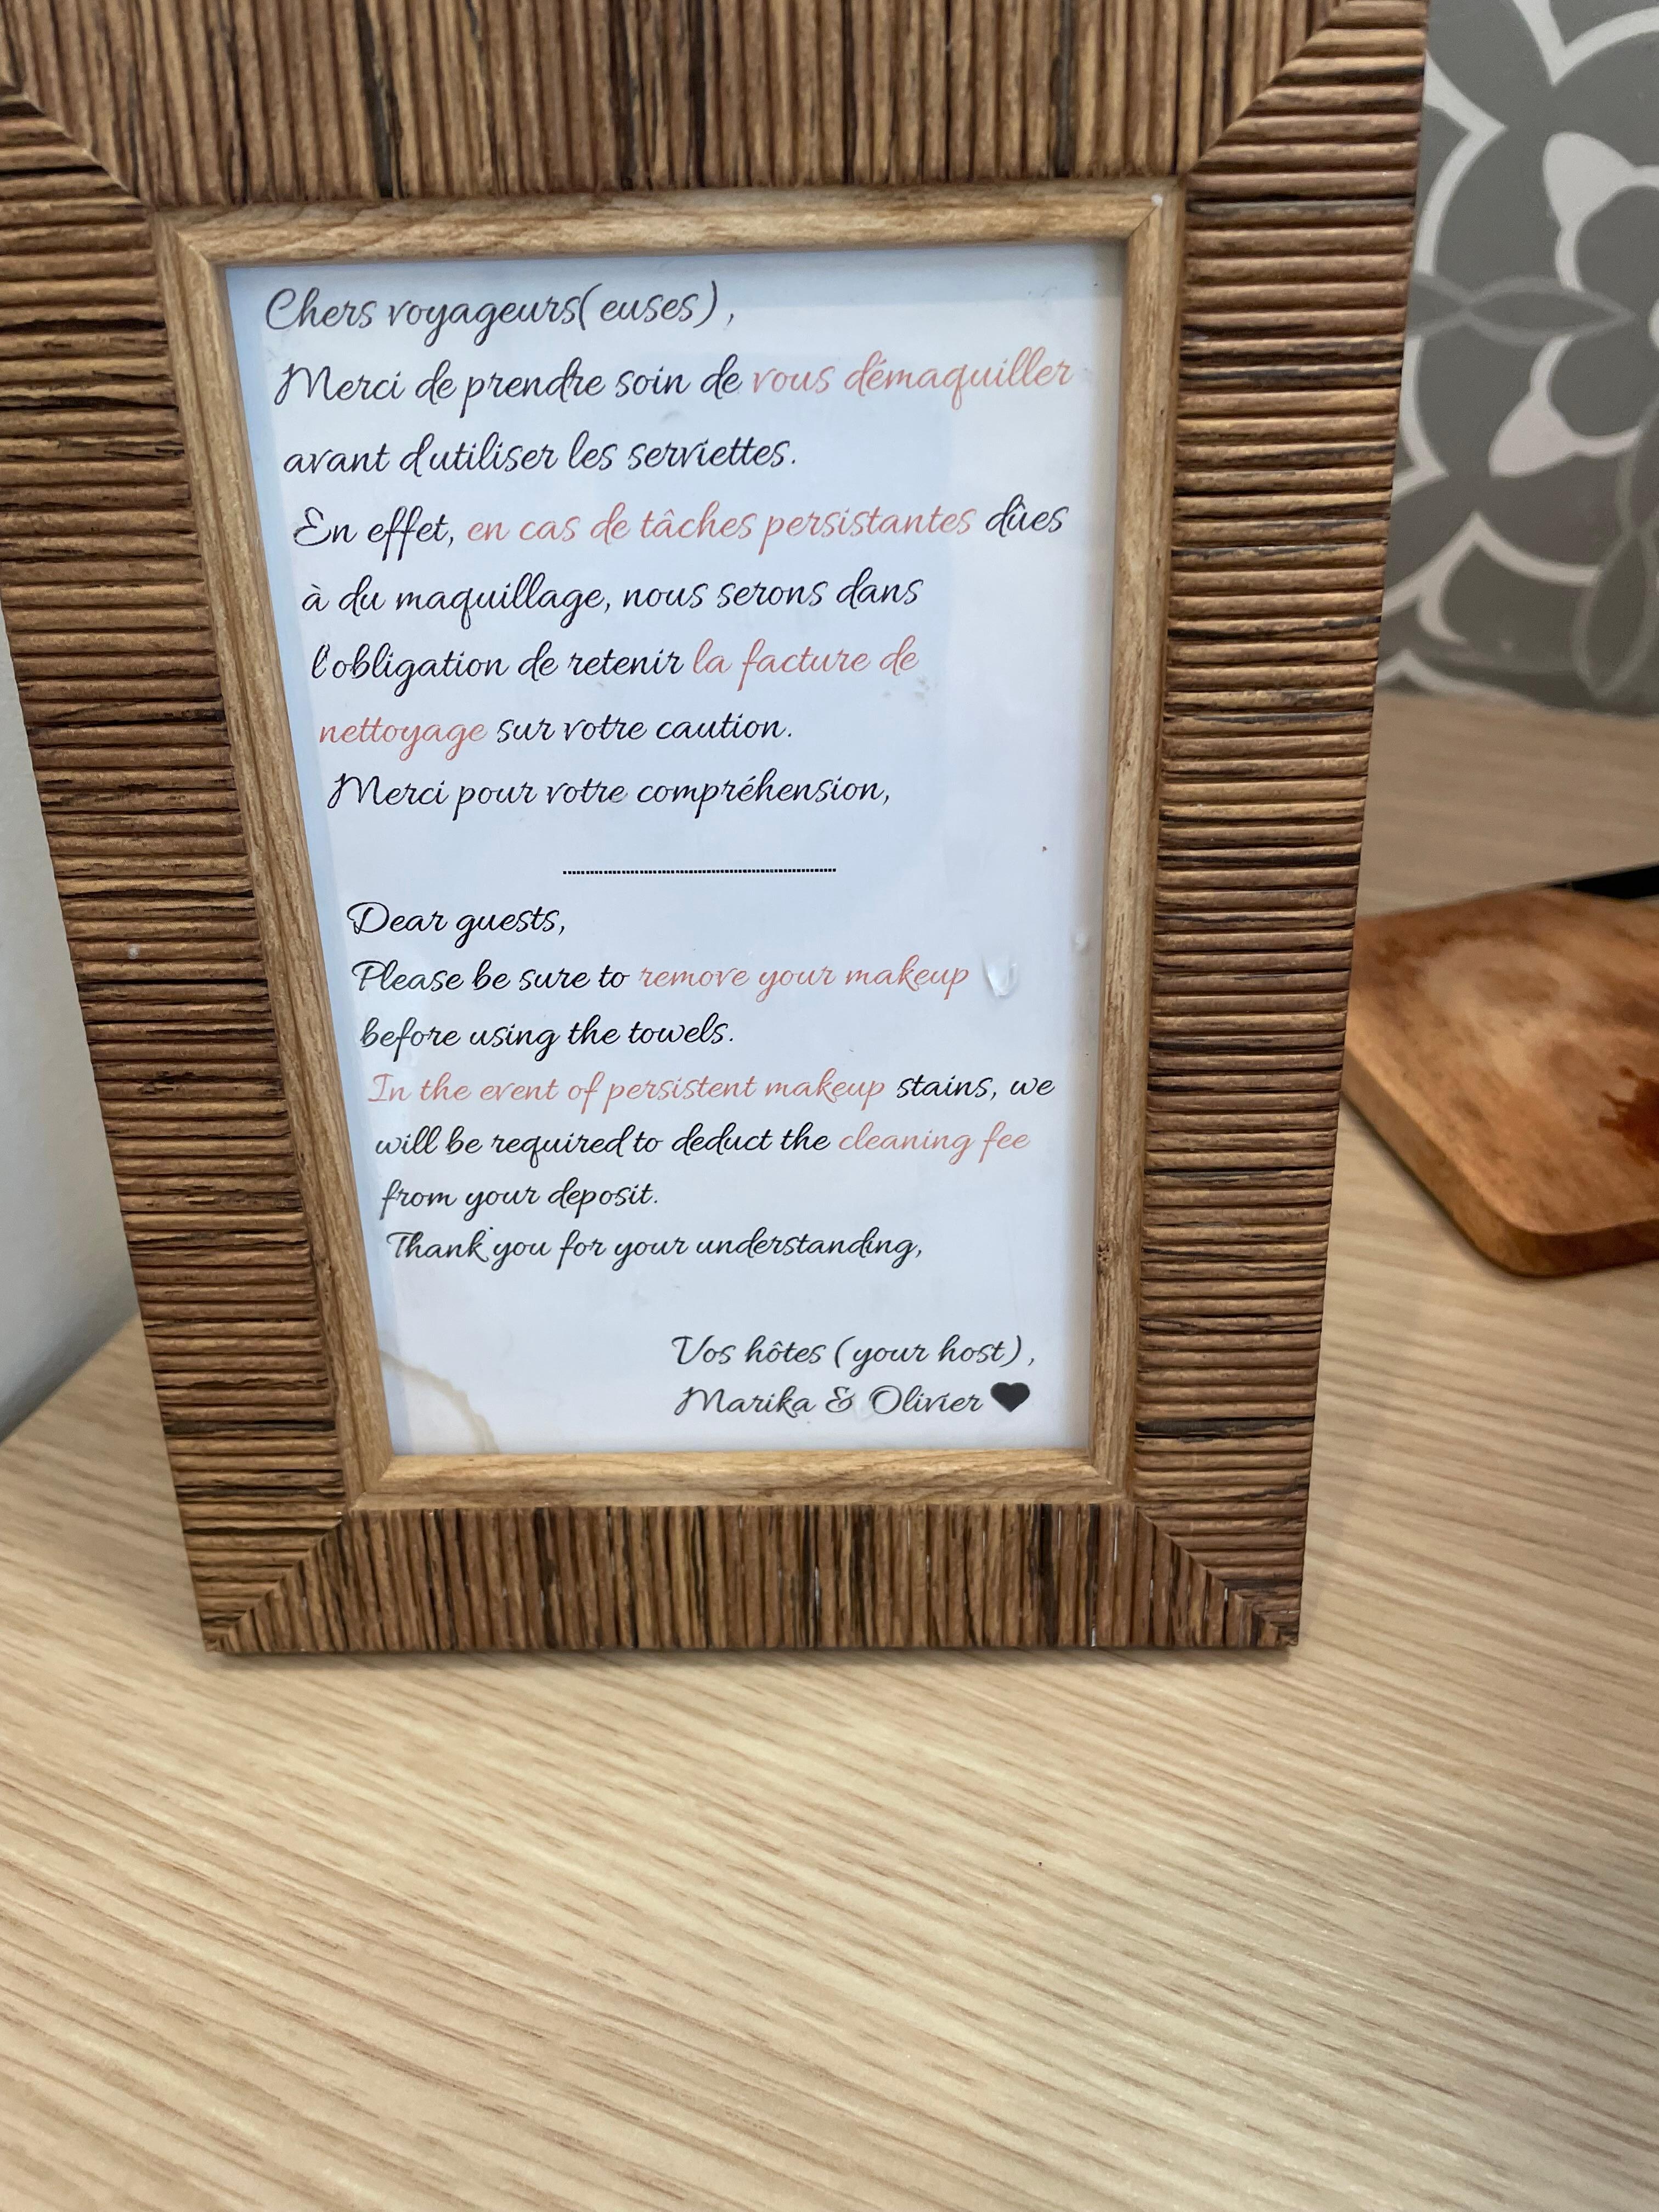 Chers voyageurs(euses),
Merci de prendre soin de vous démaquiller
avant d'utiliser les serviettes.
En effet, en cas de tâches persistantes dûes
à du maquillage, nous serons dans
l'obligation de retenir la facture de
nettoyage sur votre caution.
Merci pour votre compréhension,
Dear guests,
Please be sure to remove your makeup
before using the towels.
In the event of persistent makeup stains, we
will be required to deduct the cleaning fee
from your deposit.
Thank you for your understanding,
Vos hôtes (your host),
Marika & Olivier ♥